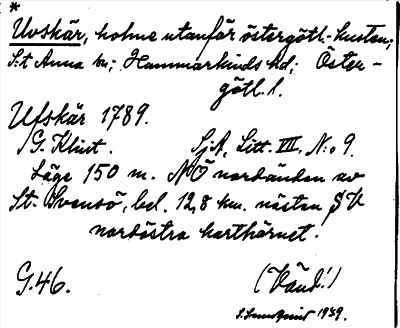 *
Uvskär, holme utanför östergötl.-kusten;
S:t Anna sn; Hammarkinds hd; Öster-
götl. l.
Ufskär 1789.
G. Klint. SjA, Litt. VII. N:o 9.
Läge 150 m. NÖ nordändan av
St. Svensö, bel. 12,8 km. nästan SV
nordöstra karthörnet.
G.46. (Vänd!)
1939.